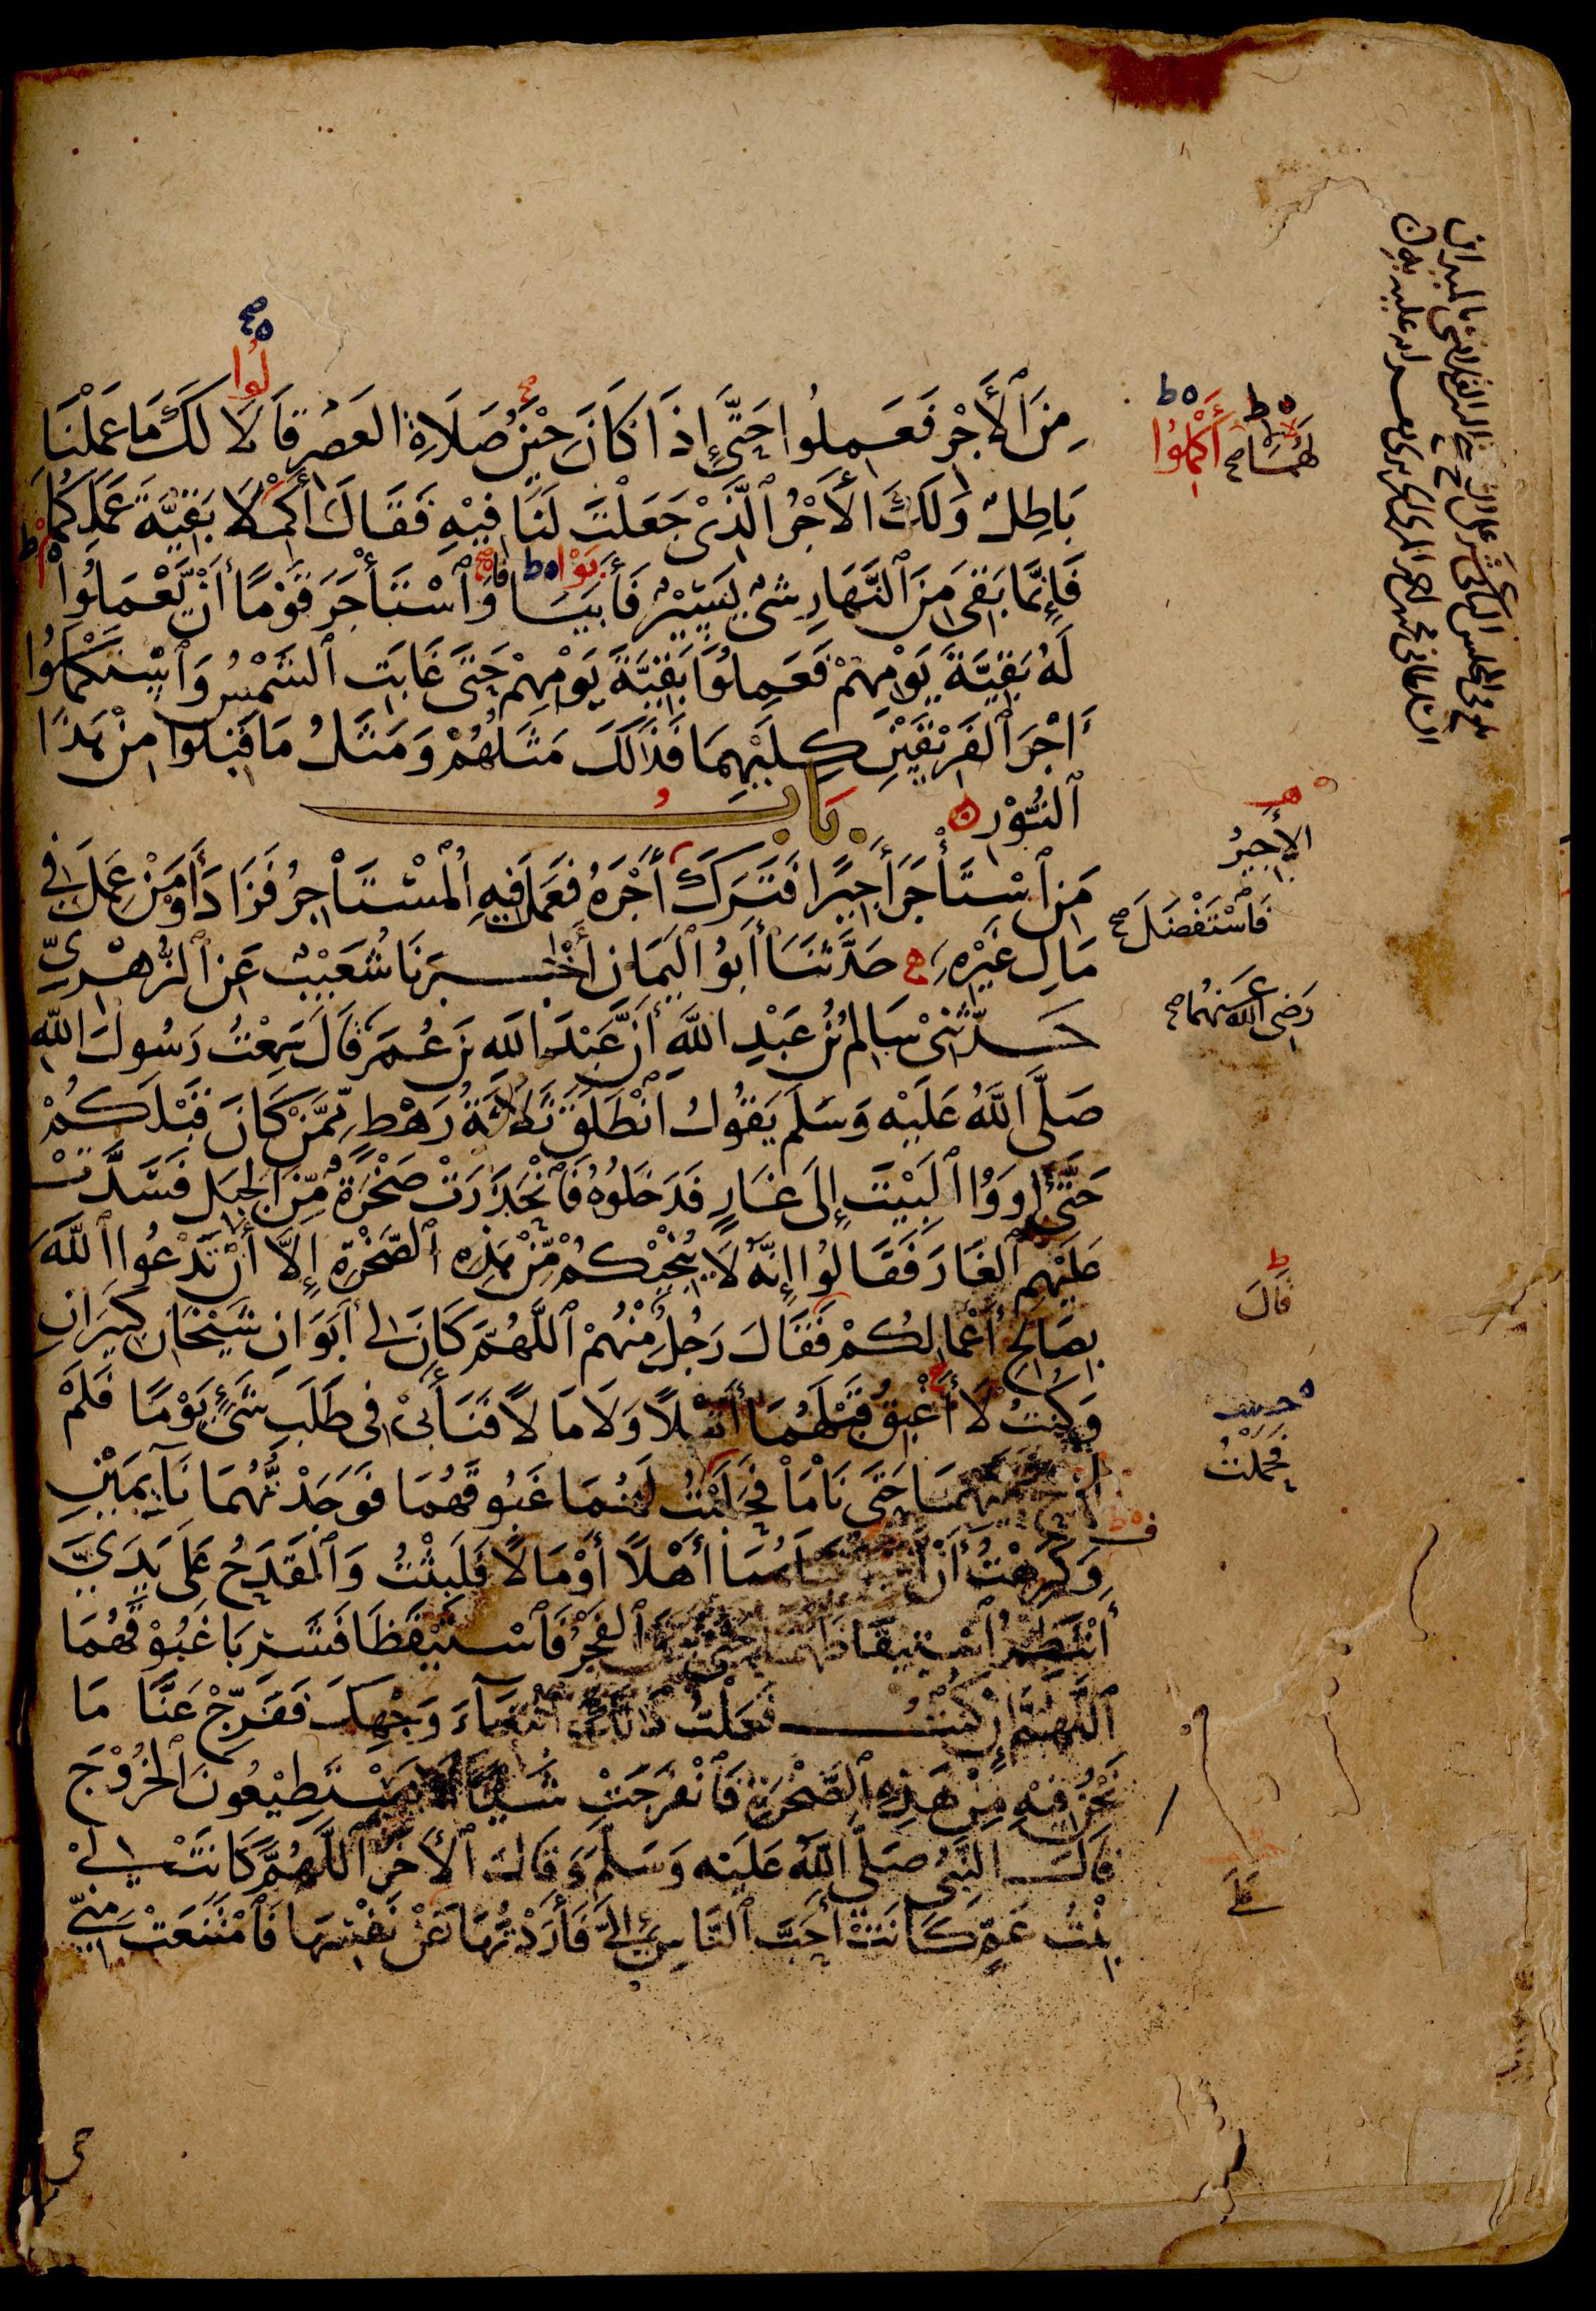 مِنَ ٱلْأَجْرِ فَعَمِلُوا حَتَّى إِذَا كَانَ حِيْنُ صَلَاةِ العَصْرِ قَالَا لَكَ مَا عَمِلْنَا
بَاطِلٌ وَلَكَ الأَجْرُ ٱلَّذِيْ جَعَلْتَ لَنَا فِيْهِ فَقَالَ أَكْمِلَا بَقِيَّةَ عَمَلِكُمَا
فَإِنَّمَا بَقِيَ مِنَ ٱلنَّهَارِ شَيْءٌ يَسِيْرٌ فَأَبَيَا وَٱسْتَأْجَرَ قَوْمًا أَنْ يَّعْمَلُوا
لَهُ بَقِيَّةَ يَوْمِهِمْ فَعَمِلُوا بَقِيَّةَ يَوْمِهِمْ حَتَّى غَابَتِ ٱلشَّمْسُ وَٱسْتَكْمَلُوا
أَجْرَ ٱلْفَرِيْقَيْنِ كِلَيْهِمَا فَذَٰلِكَ مَثَلُهُمْ وَمَثَلُ مَا قَبِلُوا مِنْ هَذَا
ٱلنُّوْرِ
بَابُ
مَنِ ٱسْتَأْجَرَ أَجِيْرًا فَتَرَكَ أَجْرَهُ فَعَمِلَ فِيهِ ٱلْمُسْتَأْجِرُ فَزَادَ أَوْ مَنْ عَمِلَ فِي
مَالِ غَيْرِهِ حَدَّثَنَا أَبُو اليَمَانِ أَخْبَرَنَا شُعَيْبٌ عَنِ ٱلزُّهْرِيِّ
حَدَّثَنِيْ سَالِمُ بْنُ عَبْدِ اللَّهِ أَنَّ عَبْدَ اللَّهِ بْنَ عُمَرَ قَالَ سَمِعْتُ رَسُولَ اللَّهِ
صَلَّى اللَّهُ عَلَيْهِ وَسَلَّمَ يَقُولُ ٱنْطَلَقَ ثَلَاثَةُ رَهْطٍ مِّمَّنْ كَانَ قَبْلَكُمْ
حَتَّى أَوَوُا ٱلْمَبِيْتَ إِلَى غَارٍ فَدَخَلُوهُ فَٱنْحَدَرَتْ صَخْرَةٌ مِّنَ الجَبَلِ فَسَدَّتْ
عَلَيْهِمُ ٱلْغَارَ فَقَالُوا إِنَّهُ لَا يُنْجِيْكُمْ مِّنْ هَذِهِ ٱلصَّخْرَةِ إِلَّا أَنْ تَدْعُوا ٱللَّهَ
بِصَالِحِ أَعْمَالِكُمْ فَقَالَ رَجُلٌ مِّنْهُمْ ٱللَّهُمَّ كَانَ لِي أَبَوَانِ شَيْخَانِ كَبِيرَانِ
وَكُنْتُ لَا أَغْبِقُ قَبْلَهُمَا أَهْلًا وَلَا مَالًا فَنَأَى بِيْ فِي طَلَبِ شَيْءٍ يَوْمًا فَلَمْ
أُرِحْ عَلَيْهِمَا حَتَّى نَامَا فَحَلَبْتُ لَهُمَا غَبُوقَهُمَا فَوَجَدْتُّهُمَا نَائِمَيْنِ
وَكَرِهْتُ أَنْ أَغْبِقَ قَبْلَهُمَا أَهْلًا أَوْ مَالًا فَلَبِثْتُ وَٱلْقَدَحُ عَلَى يَدَيَّ
أَنْتَظِرُ ٱسْتِيْقَاظَهُمَا حَتَّى بَرَقَ ٱلْفَجْرُ فَٱسْتَيْقَظَا فَشَرِبَا غَبُوْقَهُمَا
ٱللَّهُمَّ إِنْ كُنْتُ فَعَلْتُ ذَلِكَ ٱبْتِغَآءَ وَجْهِكَ فَفَرِّجْ عَنَّا مَا
نَحْنُ فِيْهِ مِنْ هَذِهِ ٱلصَّخْرَةِ فَٱنْفَرَجَتْ شَيْئًا لَا يَسْتَطِيْعُونَ ٱلْخُرُوْجَ
قَالَ النَّبِيُّ صَلَّى اللَّهُ عَلَيْهِ وَسَلَّمَ وَقَالَ ٱلْآخَرُ ٱللَّهُمَّ كَانَتْ لِيْ
بِنْتُ عَمٍّ كَانَتْ أَحَبَّ ٱلنَّاسِ إِلَيَّ فَأَرَدْتُّهَا عَنْ نَفْسِهَا فَٱمْتَنَعَتْ مِنِّي
لُوا
لَهُمَا صح
أَكْمِلُوْا
بَوْا
الأَجِيْرُ
فَاسْتَفْضَلَ صح
رَضِيَ اللَّهُ عَنْهُمَا صح
قَالَ
فَحَمَلْتُ
عَلَى